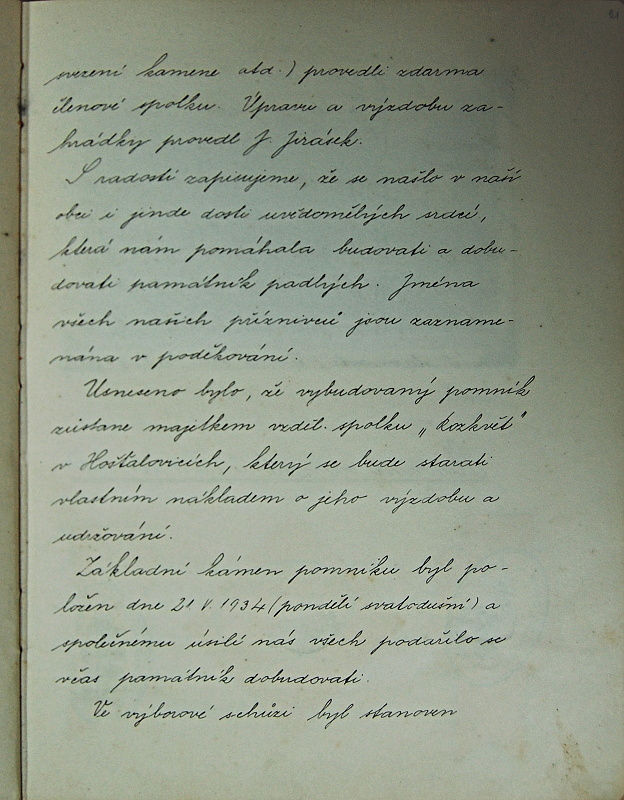 svezení kamene atd.) provedli zdarma
členové spolku. Úpravu a výzdobu za-
hrádky provedl J. Jirásek.
S radostí zapisujeme, že se našlo v naší
obci i jinde dosti uvědomělých srdcí,
která nám pomáhala budovati a dobu-
dovati památník padlých. Jména
všech našich příznivců jsou zazname-
nána v poděkování.
Usneseno bylo, že vybudovaný pomník
zůstane majetkem vzděl. spolku „Rozkvět"
v Hošťalovicích, který se bude starati
vlastním nákladem o jeho výzdobu a
udržování.
Základní kámen pomníku byl po-
ložen dne 21. V. 1934 (pondělí svatodušní) a
společnému úsilí nás všech podařilo se
včas památník dobudovati.
Ve výborové schůzi byl stanoven